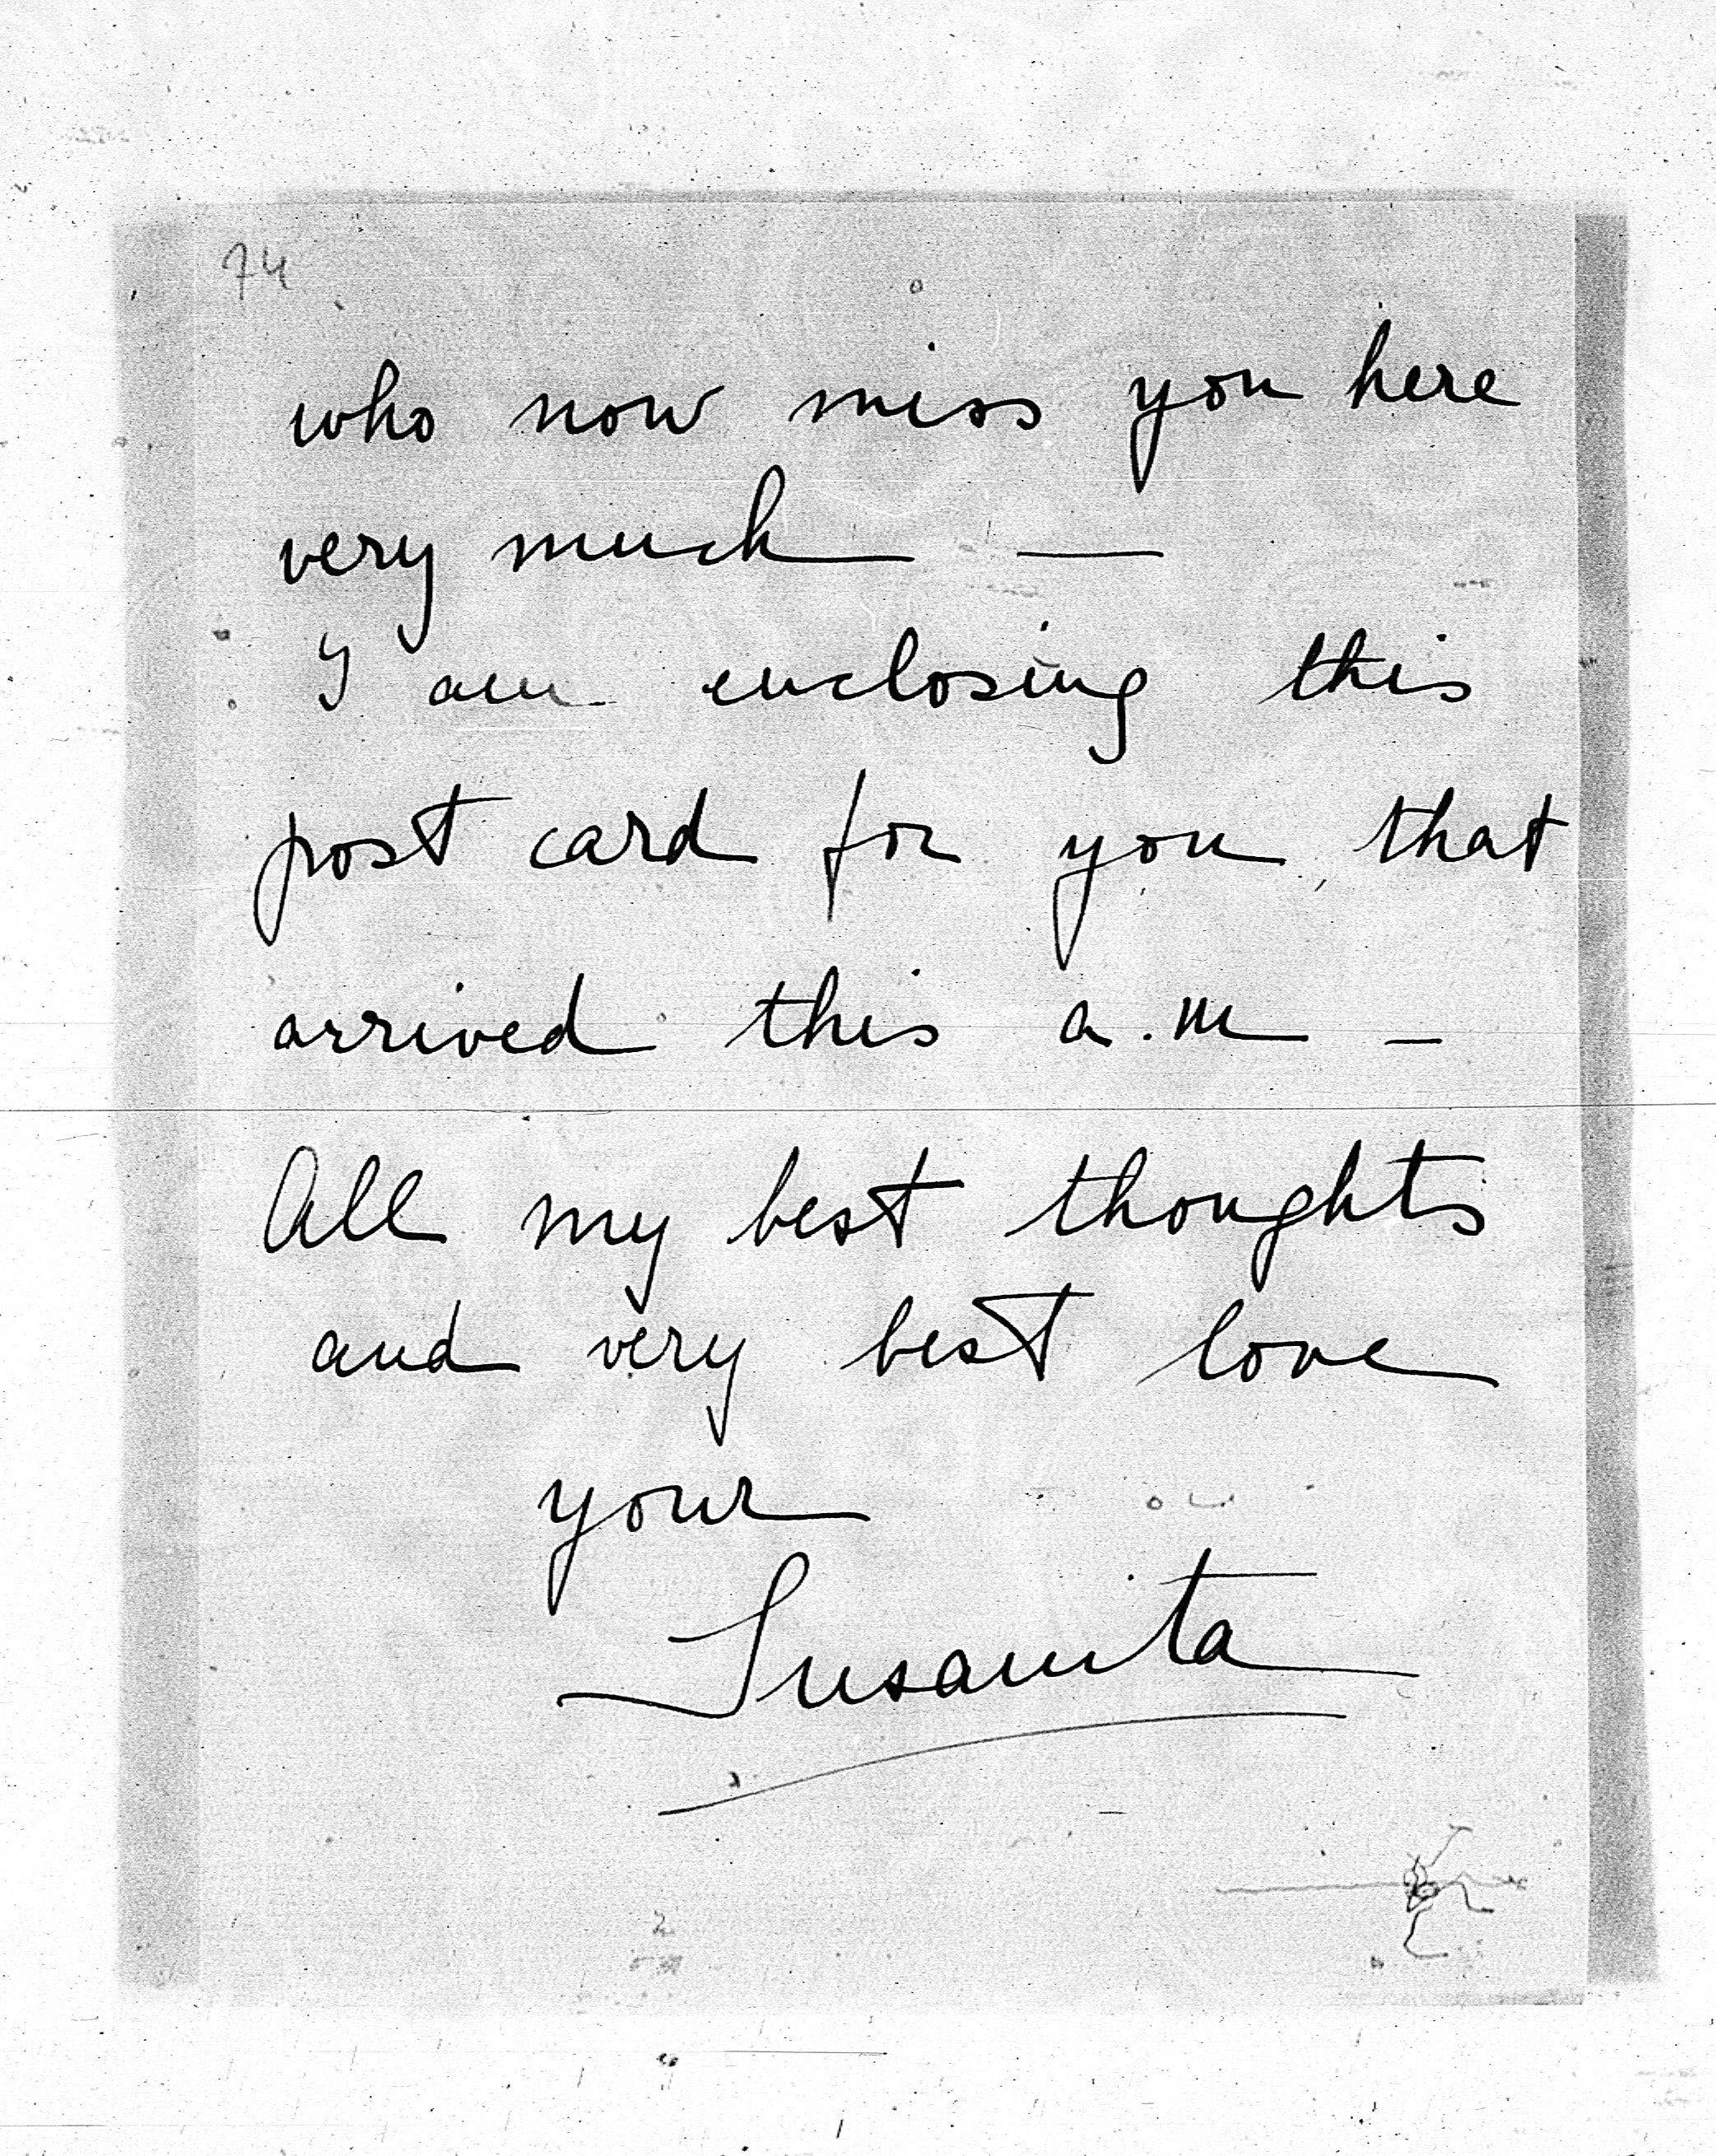 74
who now miss you here
very much —
I am enclosing this
post card for you that
arrived this a.m –
All my best thoughts
and very best love
your
Susanita